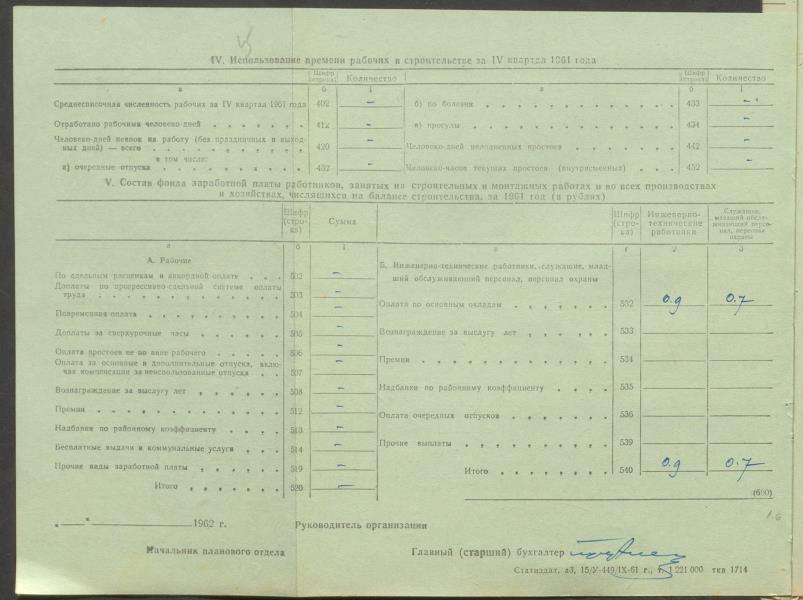 IV. Использование времени рабочих в строительстве за IV квартал 1961 года
Шифр (строка) Количество Шифр (строка) Количество
а б 1 а б 1
Среднесписочная численность рабочих за IV квартал 1961 года 402 – б) по болезни 433 –
Отработано рабочими человеко-дней 412 – в) прогулы 434 –
Человеко-дней неявок на работу (без праздничных и выход-
ных дней) — всего 420 – Человеко-дней целодневных простоев 442 –
в том числе:
а) очередные отпуска 432 – Человеко-часов текущих простоев (внутрисменных) 452 –
V. Состав фонда заработной платы работников, занятых на строительных и монтажных работах и во всех производствах
и хозяйствах, числящихся на балансе строительства, за 1961 год (в рублях)
Шифр (стро-ка) Сумма Шифр (стро-ка) Инженерно-технические работники Служащие, младший обслу-живающий персо-нал, персонал охраны
а б 1 а г 2 3
А. Рабочие
По сдельным расценкам и аккордной оплате 502 –
Доплаты по прогрессивно-сдельной системе оплаты
труда 503 –
Повременная оплата 504 –
Доплаты за сверхурочные часы 505 –
Оплата простоев не по вине рабочего 506 –
Оплата за основные и дополнительные отпуска, вклю-
чая компенсации за неиспользованные отпуска 507 –
Вознаграждение за выслугу лет 508 –
Премии 512 –
Надбавки по районному коэффициенту 513 –
Бесплатные выдачи и коммунальные услуги 514 –
Прочие виды заработной платы 519 –
Итого 520 –
Б. Инженерно-технические работники, служащие, млад-
ший обслуживающий персонал, персонал охраны
Оплата по основным окладам 532 0.9 0.7
Вознаграждение за выслугу лет 533
Премии 534
Надбавки по районному коэффициенту 535
Оплата очередных отпусков 536
Прочие выплаты 539
Итого 540 0.9 0.7
(600)
1.6
„ “ 1962 г. Руководитель организации
Начальник планового отдела Главный (старший) бухгалтер
Статиздат, а3, 15/У-449/IX-61 г., т. 1 221 000 ткв 1714